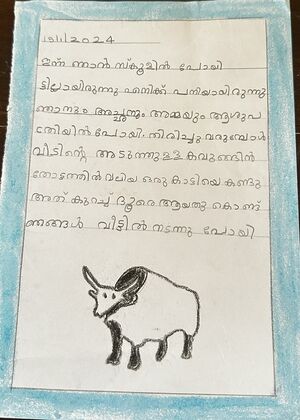 19/1/2024
ഇന്ന് ഞാൻ സ്കൂളിൽ പോയി
ട്ടില്ലായിരുന്നു എനിക്ക് പനിയായിരുന്നു
ഞാനും അച്ഛനും അമ്മയും ആശുപ
ത്രിയിൽ പോയി. തിരിച്ചു വരുമ്പോൾ
വീടിന്റെ അടുത്തുള്ള കവുങ്ങിൻ
തോട്ടത്തിൽ വലിയ ഒരു കാട്ടിയെ കണ്ടു
അത് കുറച്ച് ദൂരെ ആയതു കൊണ്ട്
ഞങ്ങൾ വീട്ടിൽ നടന്നു പോയി